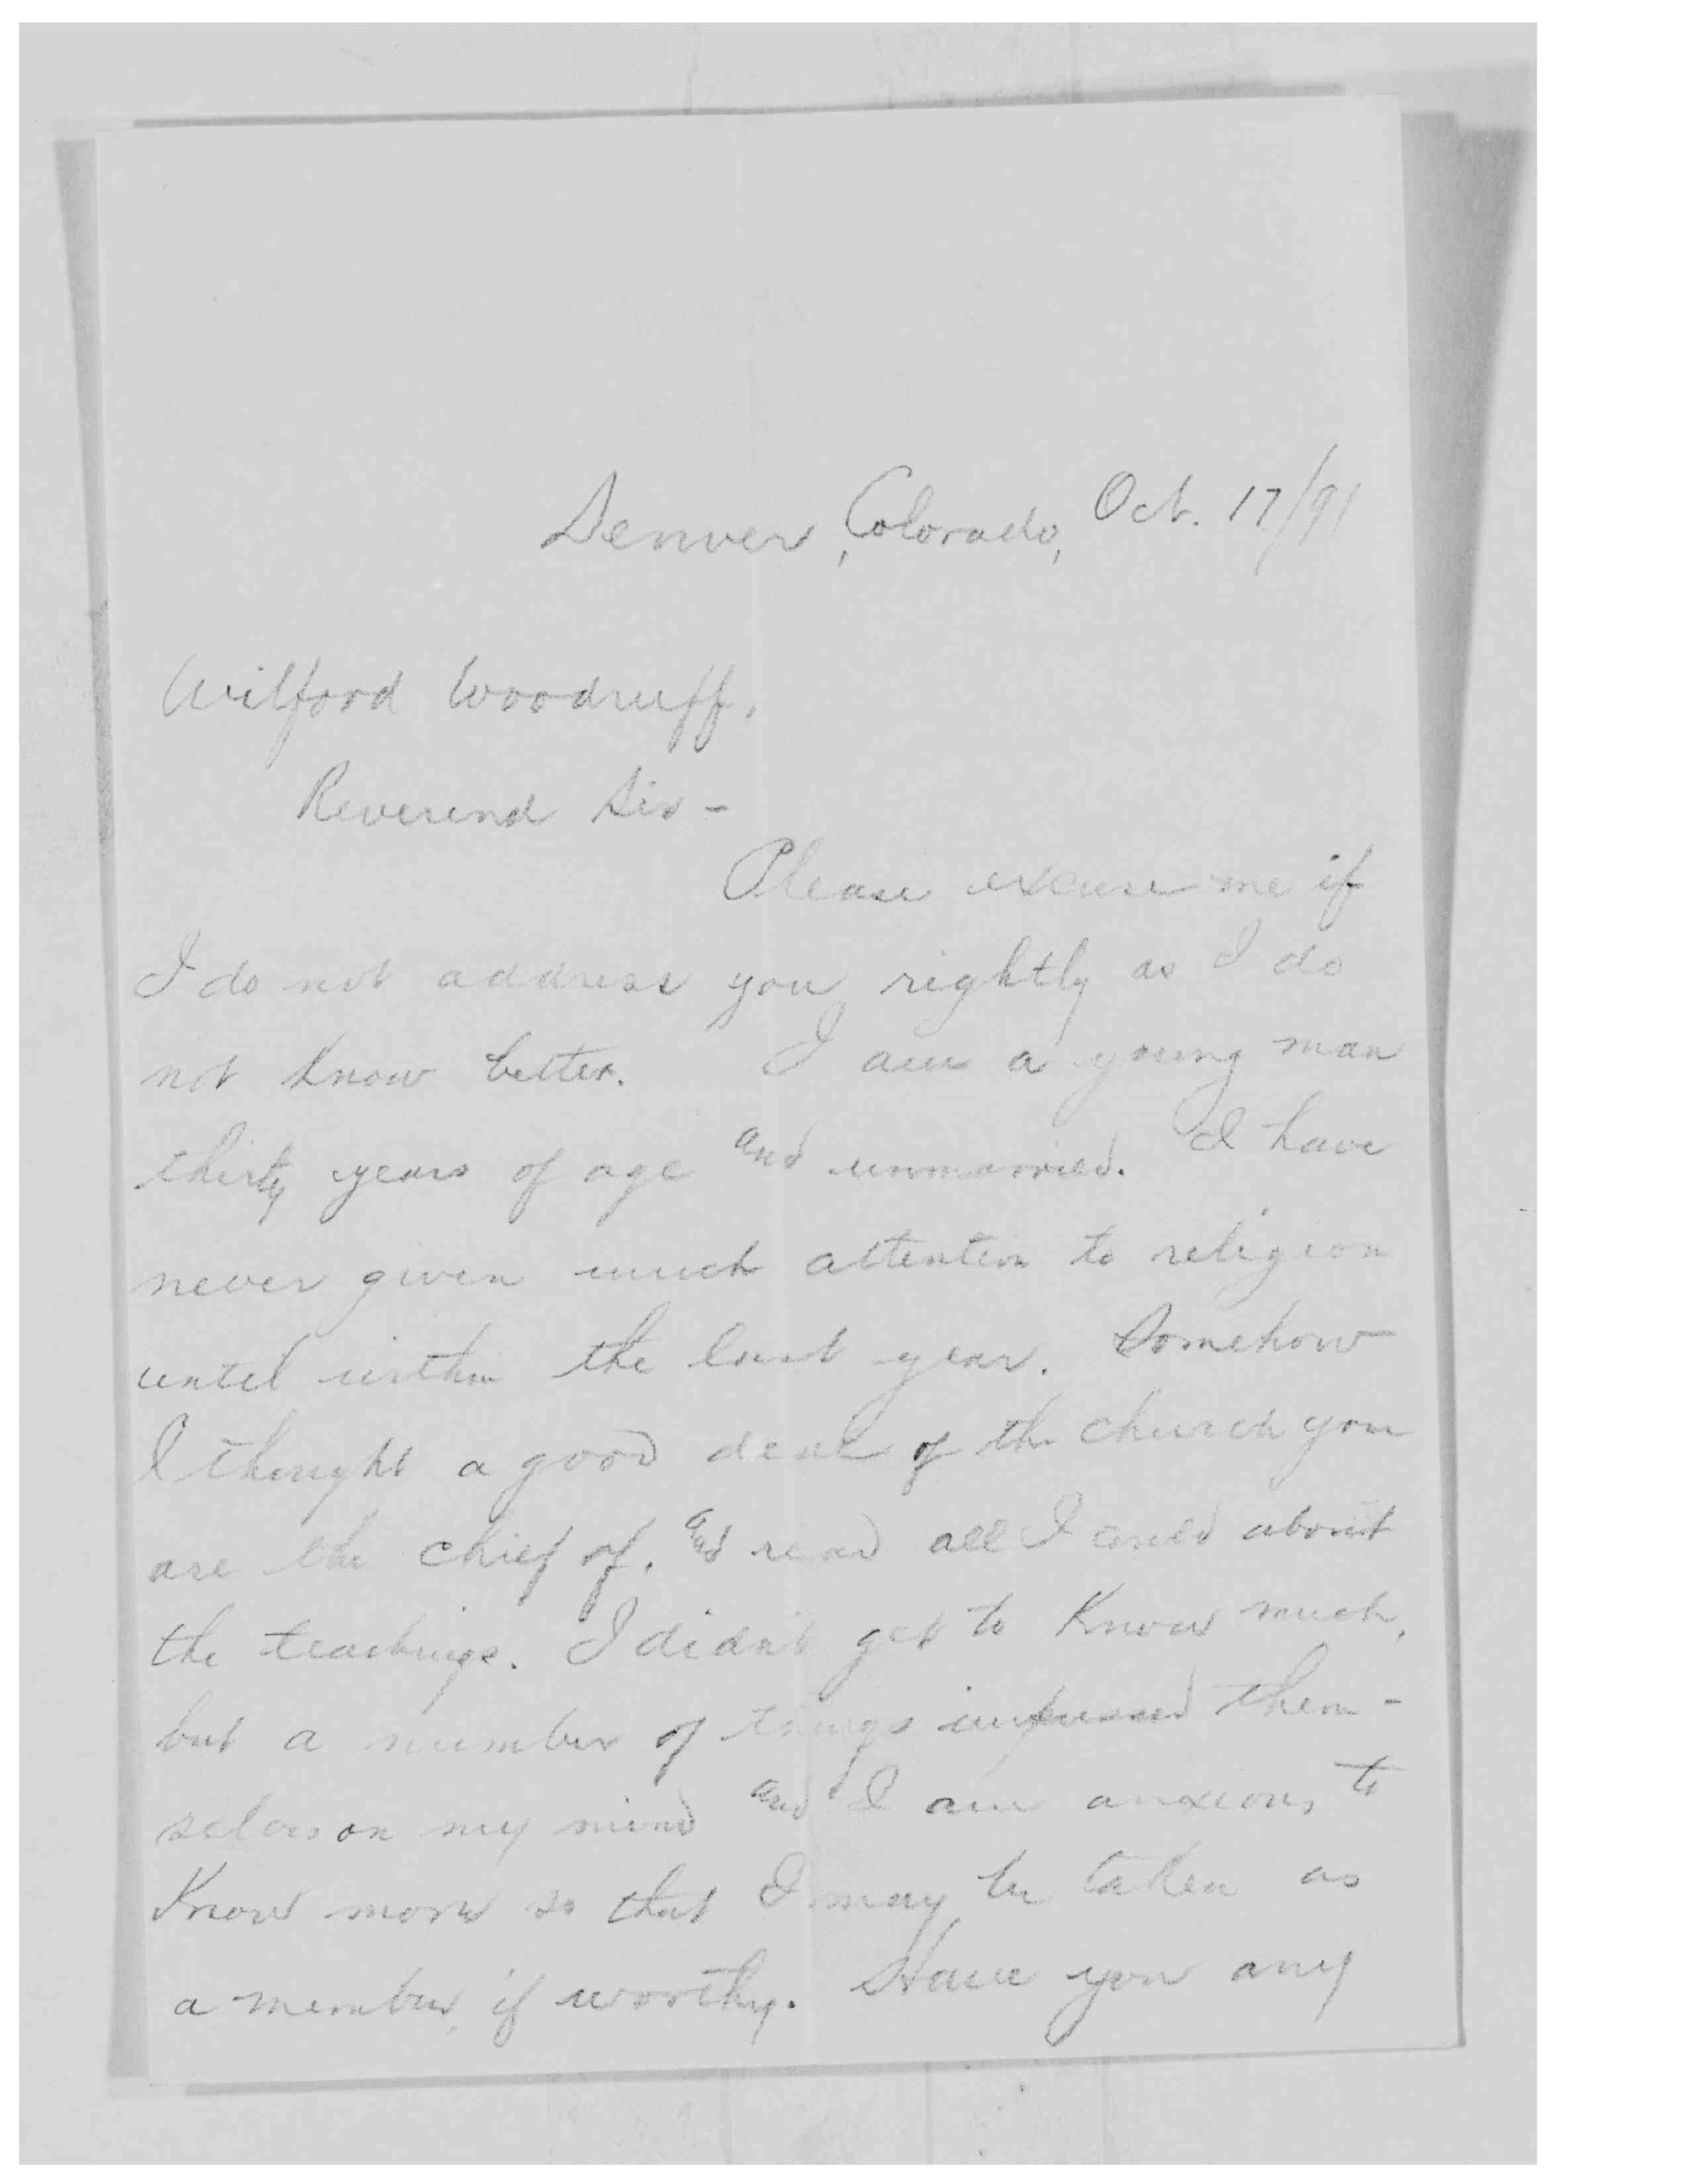 Denver, Colorado, Oct. 17/91
Wilford Woodruff.
Reverend Sir -
Please excuse me if
I do not address you rightly as I do
not know better. I am a young man
thirty years of age and unmarried. I have
never given much attention to religion
until within the last year. Somehow
I thought a good deal of the church you
are the chief of, and read all I could about
the teachings. I didn't get to know much,
but a number of things impressed them-
selves on my mind and I am anxious to
know more so that I may be taken as
a member, if worthy. Have you any